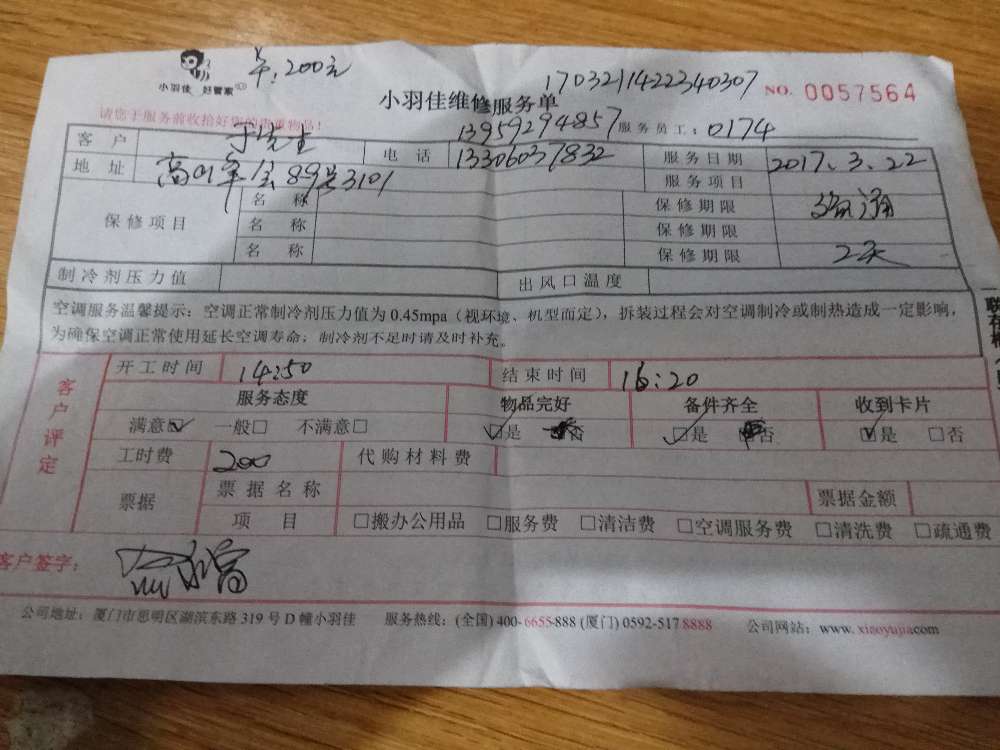 单:200元
17032114222340307
小羽佳 好管家
小羽佳维修服务单
NO. 0057564
请您于服务前收拾好您的贵重物品!
13959294857 服务员工: 0174
客户 于先生 电话 13306037832 服务日期 2017.3.22
地址 89号3101 服务项目
保修项目 名称 保修期限 疏通
名称 保修期限
名称 保修期限 2天
制冷剂压力值 出风口温度
空调服务温馨提示:空调正常制冷剂压力值为 0.45mpa(视环境、机型而定),拆装过程会对空调制冷或制热造成一定影响,
为确保空调正常使用延长空调寿命;制冷剂不足时请及时补充。
客户评定
开工时间 14:50 结束时间 16:20
服务态度 物品完好 备件齐全 收到卡片
满意☑ 一般□ 不满意□ ☑是 否 ☑是 否 ☑是 □否
工时费 200 代购材料费
票据 票据名称 票据金额
项目 □搬办公用品 □服务费 □清洁费 □空调服务费 □清洗费 □疏通费
客户签字:
公司地址:厦门市思明区湖滨东路 319 号 D 幢小羽佳 服务热线:(全国) 400-6655-888 (厦门) 0592-517 8888 公司网站:www.xiaoyujia.com